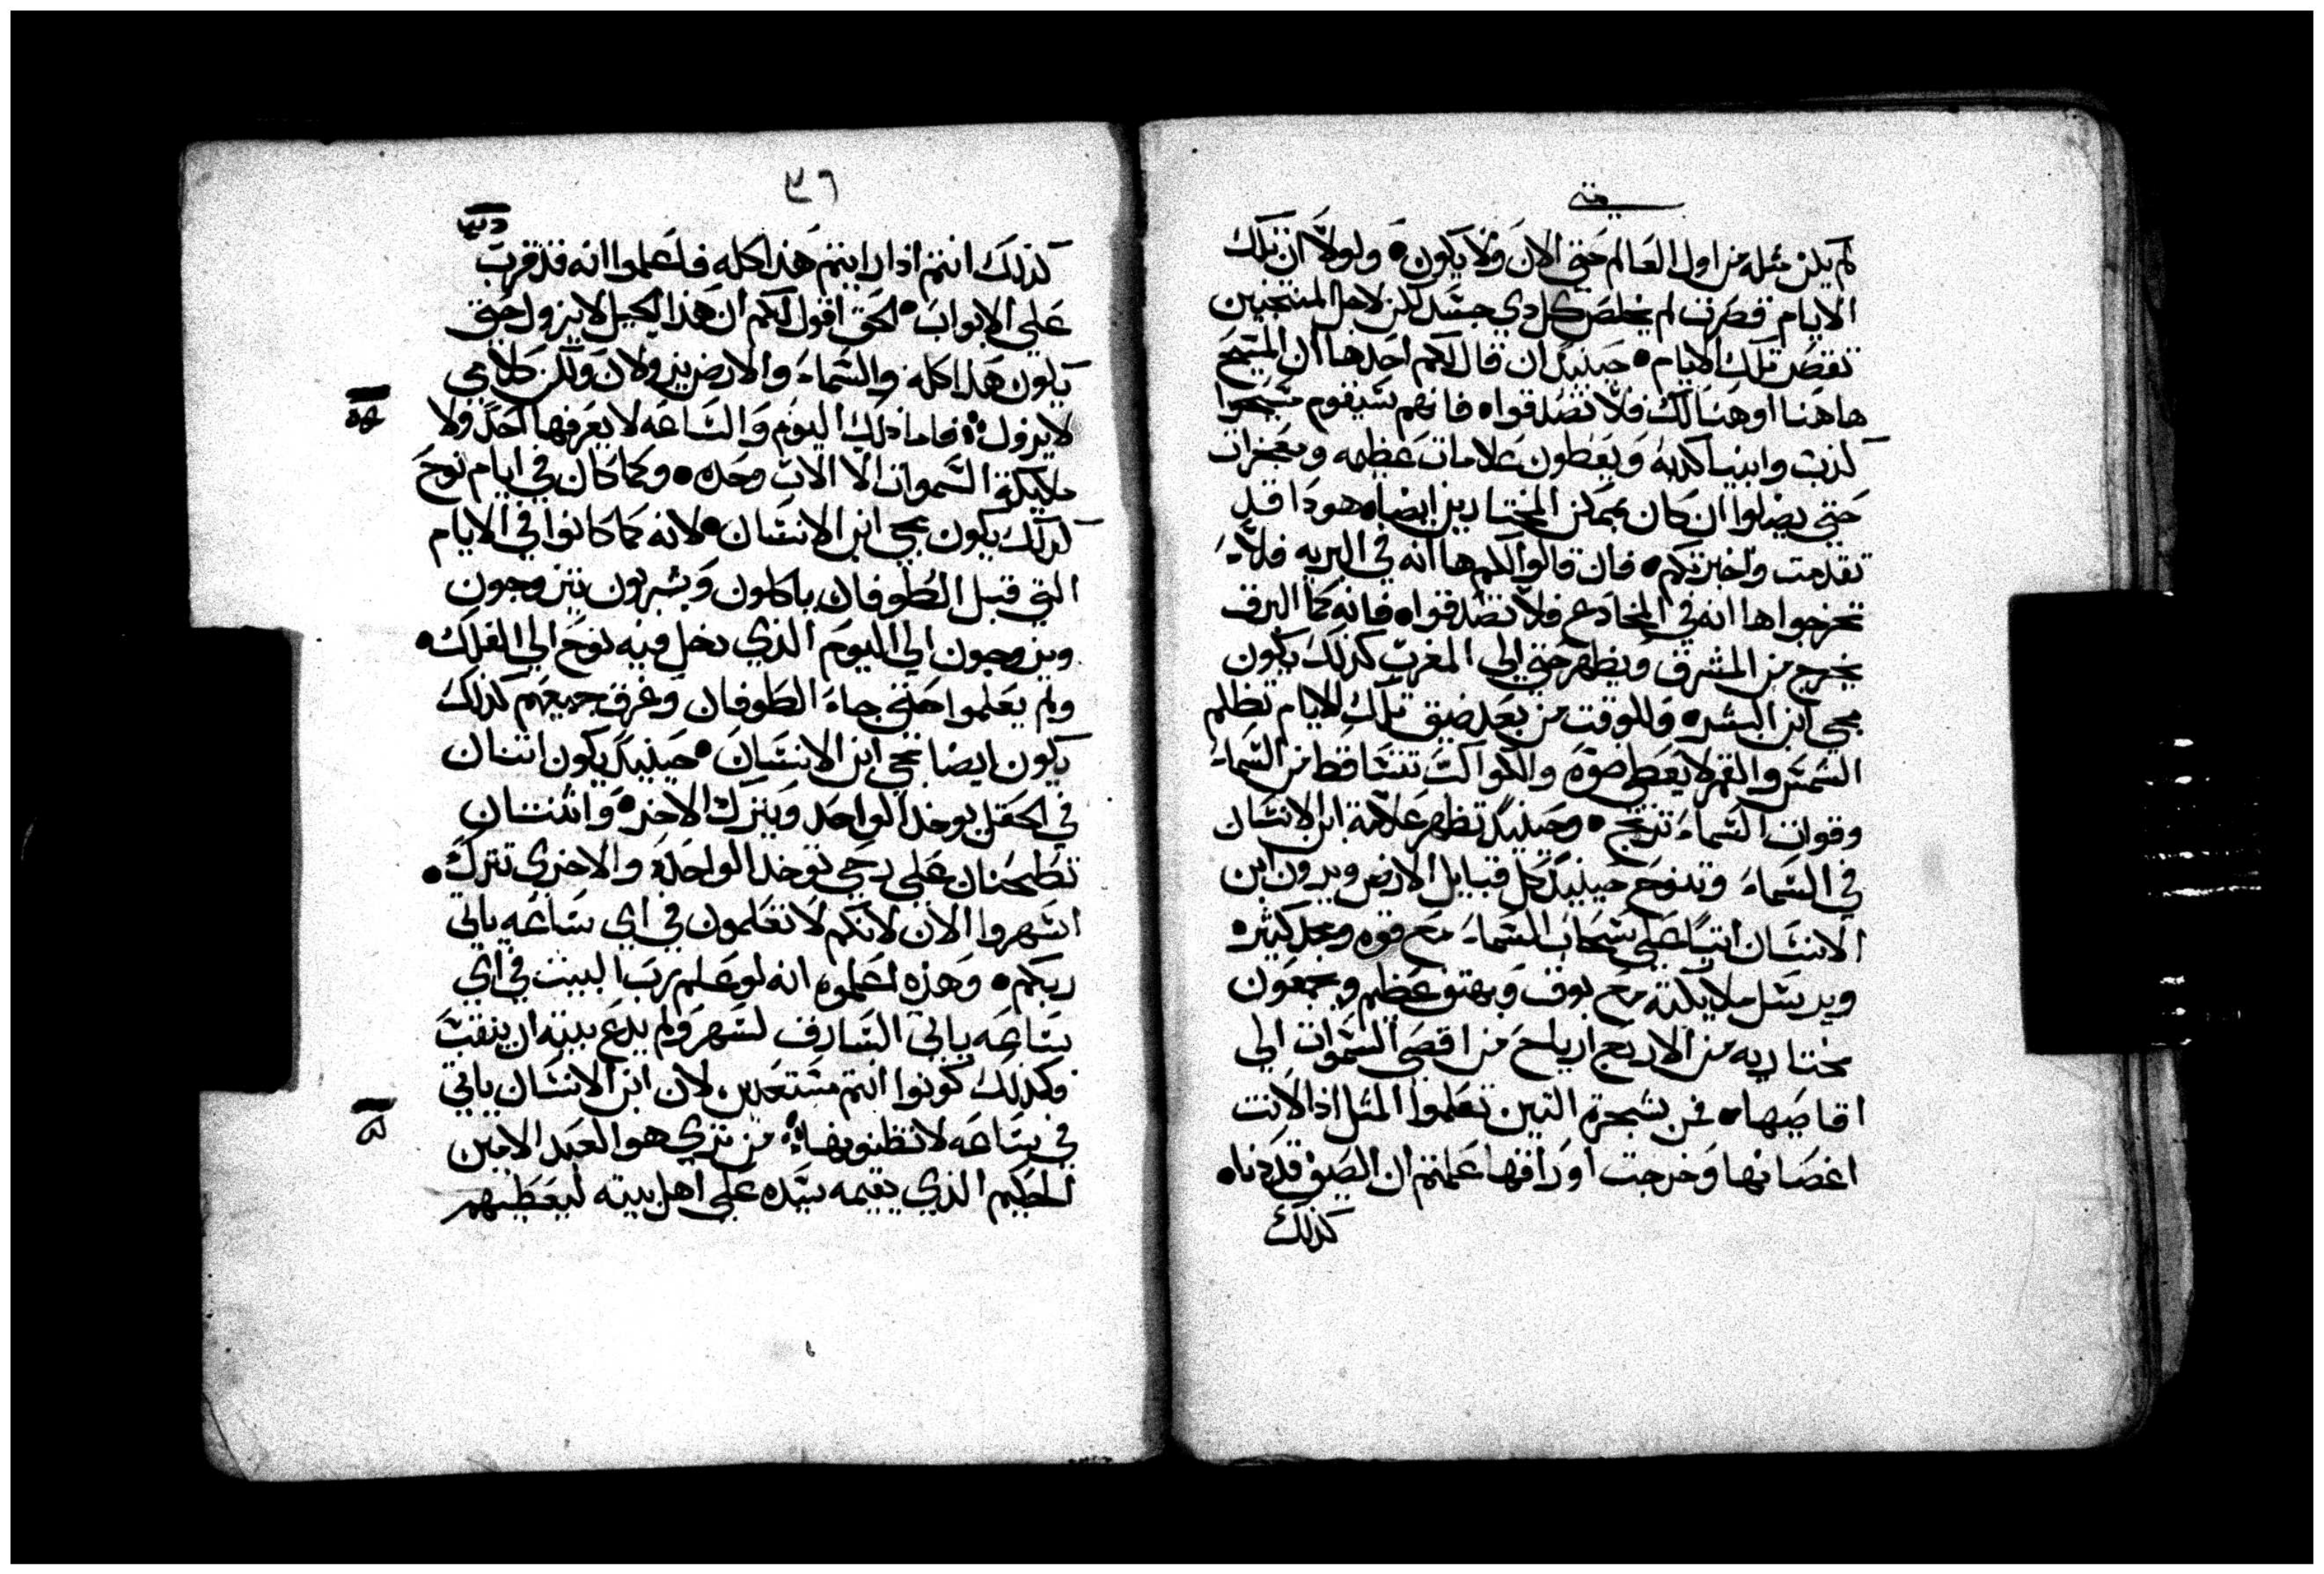 متى
لم يكن مثله من اول العالم حتى الان ولا يكون • ولولا ان تلك
الايام قصرت لم يخلص كل دي جسد لكن لاجل المنتخبين
تقصر تلك الايام • حينيدٍ ان قال لكم احد ها ان المسيح
هاهنا او هنالك فلا تصدقوا • فانهم سيقوم مسحوا
كذبت وانبيا كدبه ويعطون علامات عظيمه ومعجزات
حتى يضلوا ان كان يمكن المختارين ايضا • هودا قد
تقدمت واخبرتكم • فان قالوا لكم ها انه في البريه فلا
تخرجوا ها انه في المخادع فلا تصدقوا • فانه كما البرق
يخرج من المشرق ويظهر حتى الى المغرب كذلك يكون
مجي ابن البشر • وللوقت من بعد ضيق تلك الايام تظلم
الشمس والقمر لا يعطى ضوه والكواكب تتساقط من السماء
وقوات السماء ترتج • وحينيدٍ تظهر علامة ابن الانسان
في السماء وتنوح حينيدٍ كل قبايل الارض ويرون ابن
الانسان اتيًا على سحاب السماء مع قوه ومجد كثير •
ويرسل ملايكته مع بوق وبهتو عظيم ويجمعون
مختاريه من الاربع ارياح من اقصى السموات الى
اقاصيها • فمن شجرة التين تعلموا المثل اذا لانت
اغصانها وخرجت اوراقها علمتم ان الصيف قد دنا •
كذلك
٣٦
كذلك انتم ادا رايتم هذا كله فاعلموا انه قد قرب
على الابواب • الحق اقول لكم ان هذا الجيل لا يزول حتى
يكون هذا كله والسماء والارض يزولان ولكن كلامي
لا يزول • فاما ذلك اليوم والساعه لا يعرفها احد ولا
ملايكة السموات الا الاب وحده • وكما كان في ايام نوح
كدلك يكون مجي ابن الانسان • لانه كما كانوا في الايام
التي قبل الطوفان ياكلون ويشربون يتزوجون
ويزوجون الى اليوم الذي دخل فيه نوح الى الفلك •
ولم يعلموا حتى جاء الطوفان وغرق جميعهم كذلك
يكون ايضا مجي ابن الانسان • حينيدٍ يكون اتنان
في الحقل يوخد الواحد ويترك الاخر • واثنتان
تطحنان على رحى توخد الواحده والاخرى تترك •
اسهروا الان لانكم لا تعلمون في اي ساعه ياتي
ربكم • وهذه اعلموه انه لو علم رب البيت في اي
ساعه ياتي السارق لسهر ولم يدع بيته ان ينقب
وكذلك كونوا انتم مستعدين لان ابن الانسان ياتي
في ساعه لا تظنونها • من ترى هو العبد الامين
الحكيم الذي يقيمه سيده على اهل بيته ليعطيهم